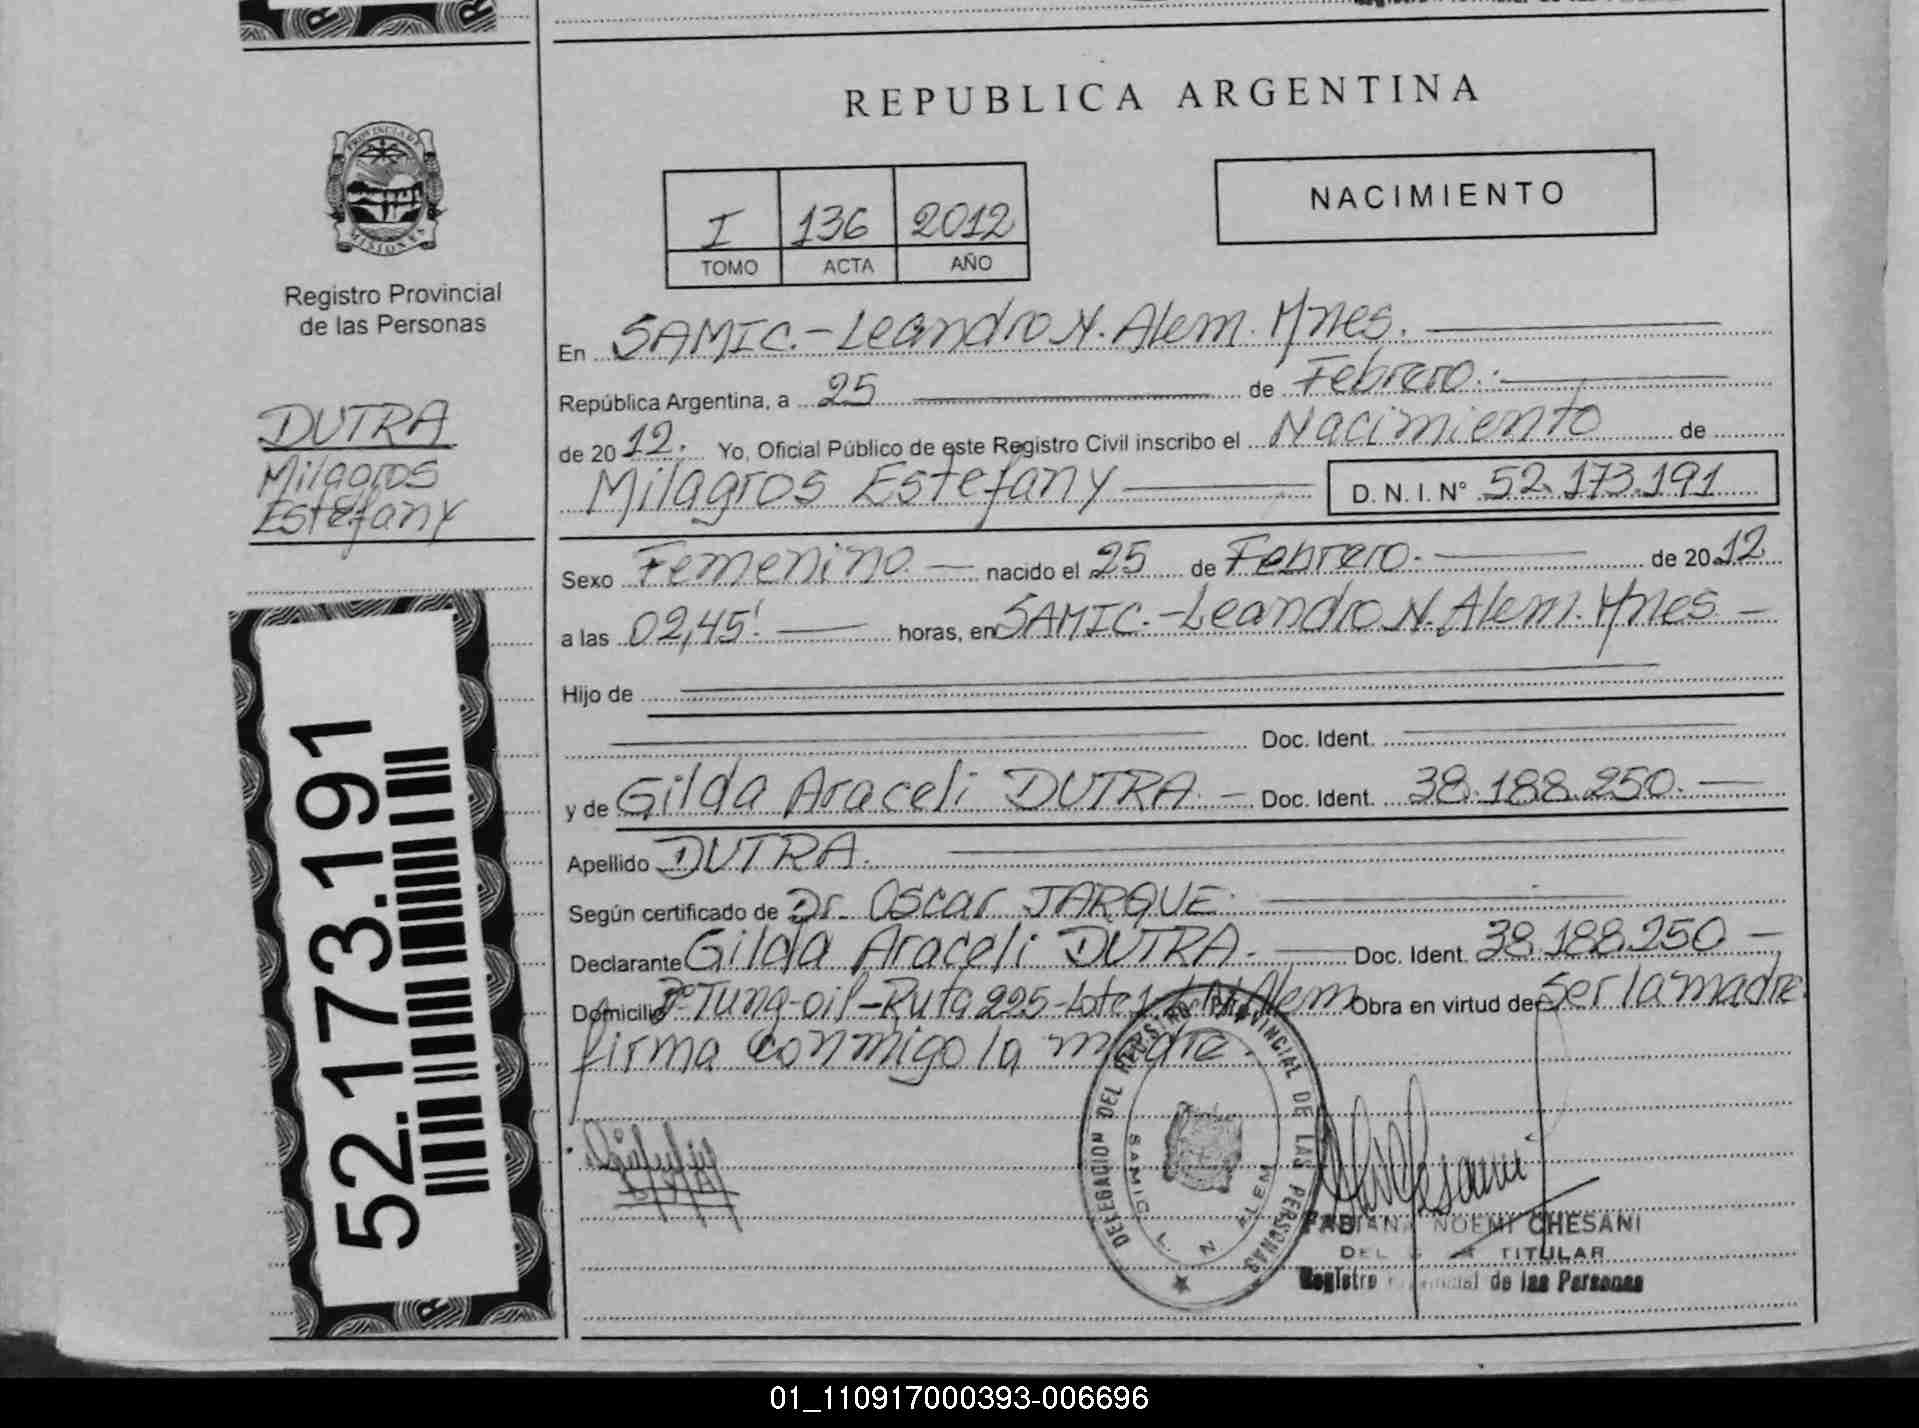 REPUBLICA ARGENTINA
NACIMIENTO
I 136 2012
TOMO ACTA AÑO
PROVINCIA DE
MISIONES
Registro Provincial
de las Personas
DUTRA
Milagros
Estefany
52.173.191
En SAMIC.-Leandro N. Alem. Mnes.
República Argentina, a 25 de Febrero.
de 2012. Yo, Oficial Público de este Registro Civil inscribo el Nacimiento de
Milagros Estefany D. N. I. N° 52.173.191
Sexo Femenino nacido el 25 de Febrero. de 2012
a las 02,45' horas, en SAMIC.-Leandro N. Alem. Mnes
Hijo de
Doc. Ident.
y de Gilda Araceli DUTRA. Doc. Ident. 38.188.250.
Apellido DUTRA.
Según certificado de Dr. Oscar JARQUE.
Declarante Gilda Araceli DUTRA. Doc. Ident. 38.188.250
Domicilio Tung-oil-Ruta 225-Lote 1 Alem Obra en virtud de Ser la madre.
firma conmigo la madre.
DELEGACION DEL REGISTRO PROVINCIAL DE LAS PERSONAS
SAMIC L. N. ALEM
FABIANA NOEMI CHESANI
TITULAR
Registro Provincial de las Personas
01_110917000393-006696